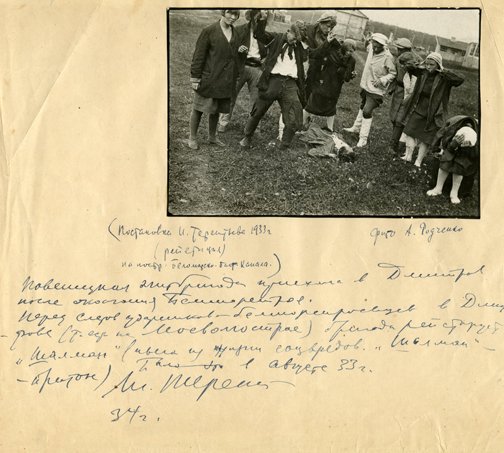 (Постановка И. Терентьева 1933г.
(репетиция)
на постр. Беломорско-Балт. Канала.)
фото А. Родченко
Повенецкая агитбригада приехала в Дмитров
после окончания Беломорстроя.
Перед слетом ударников-беломорстроевцев в Дмит-
рове (т.е. на Москволгострое) бригада репетирует
"Шалман" (пьеса из жизни соцвредов. "Шалман" -
- притон) Было это в августе 33г.
34г.